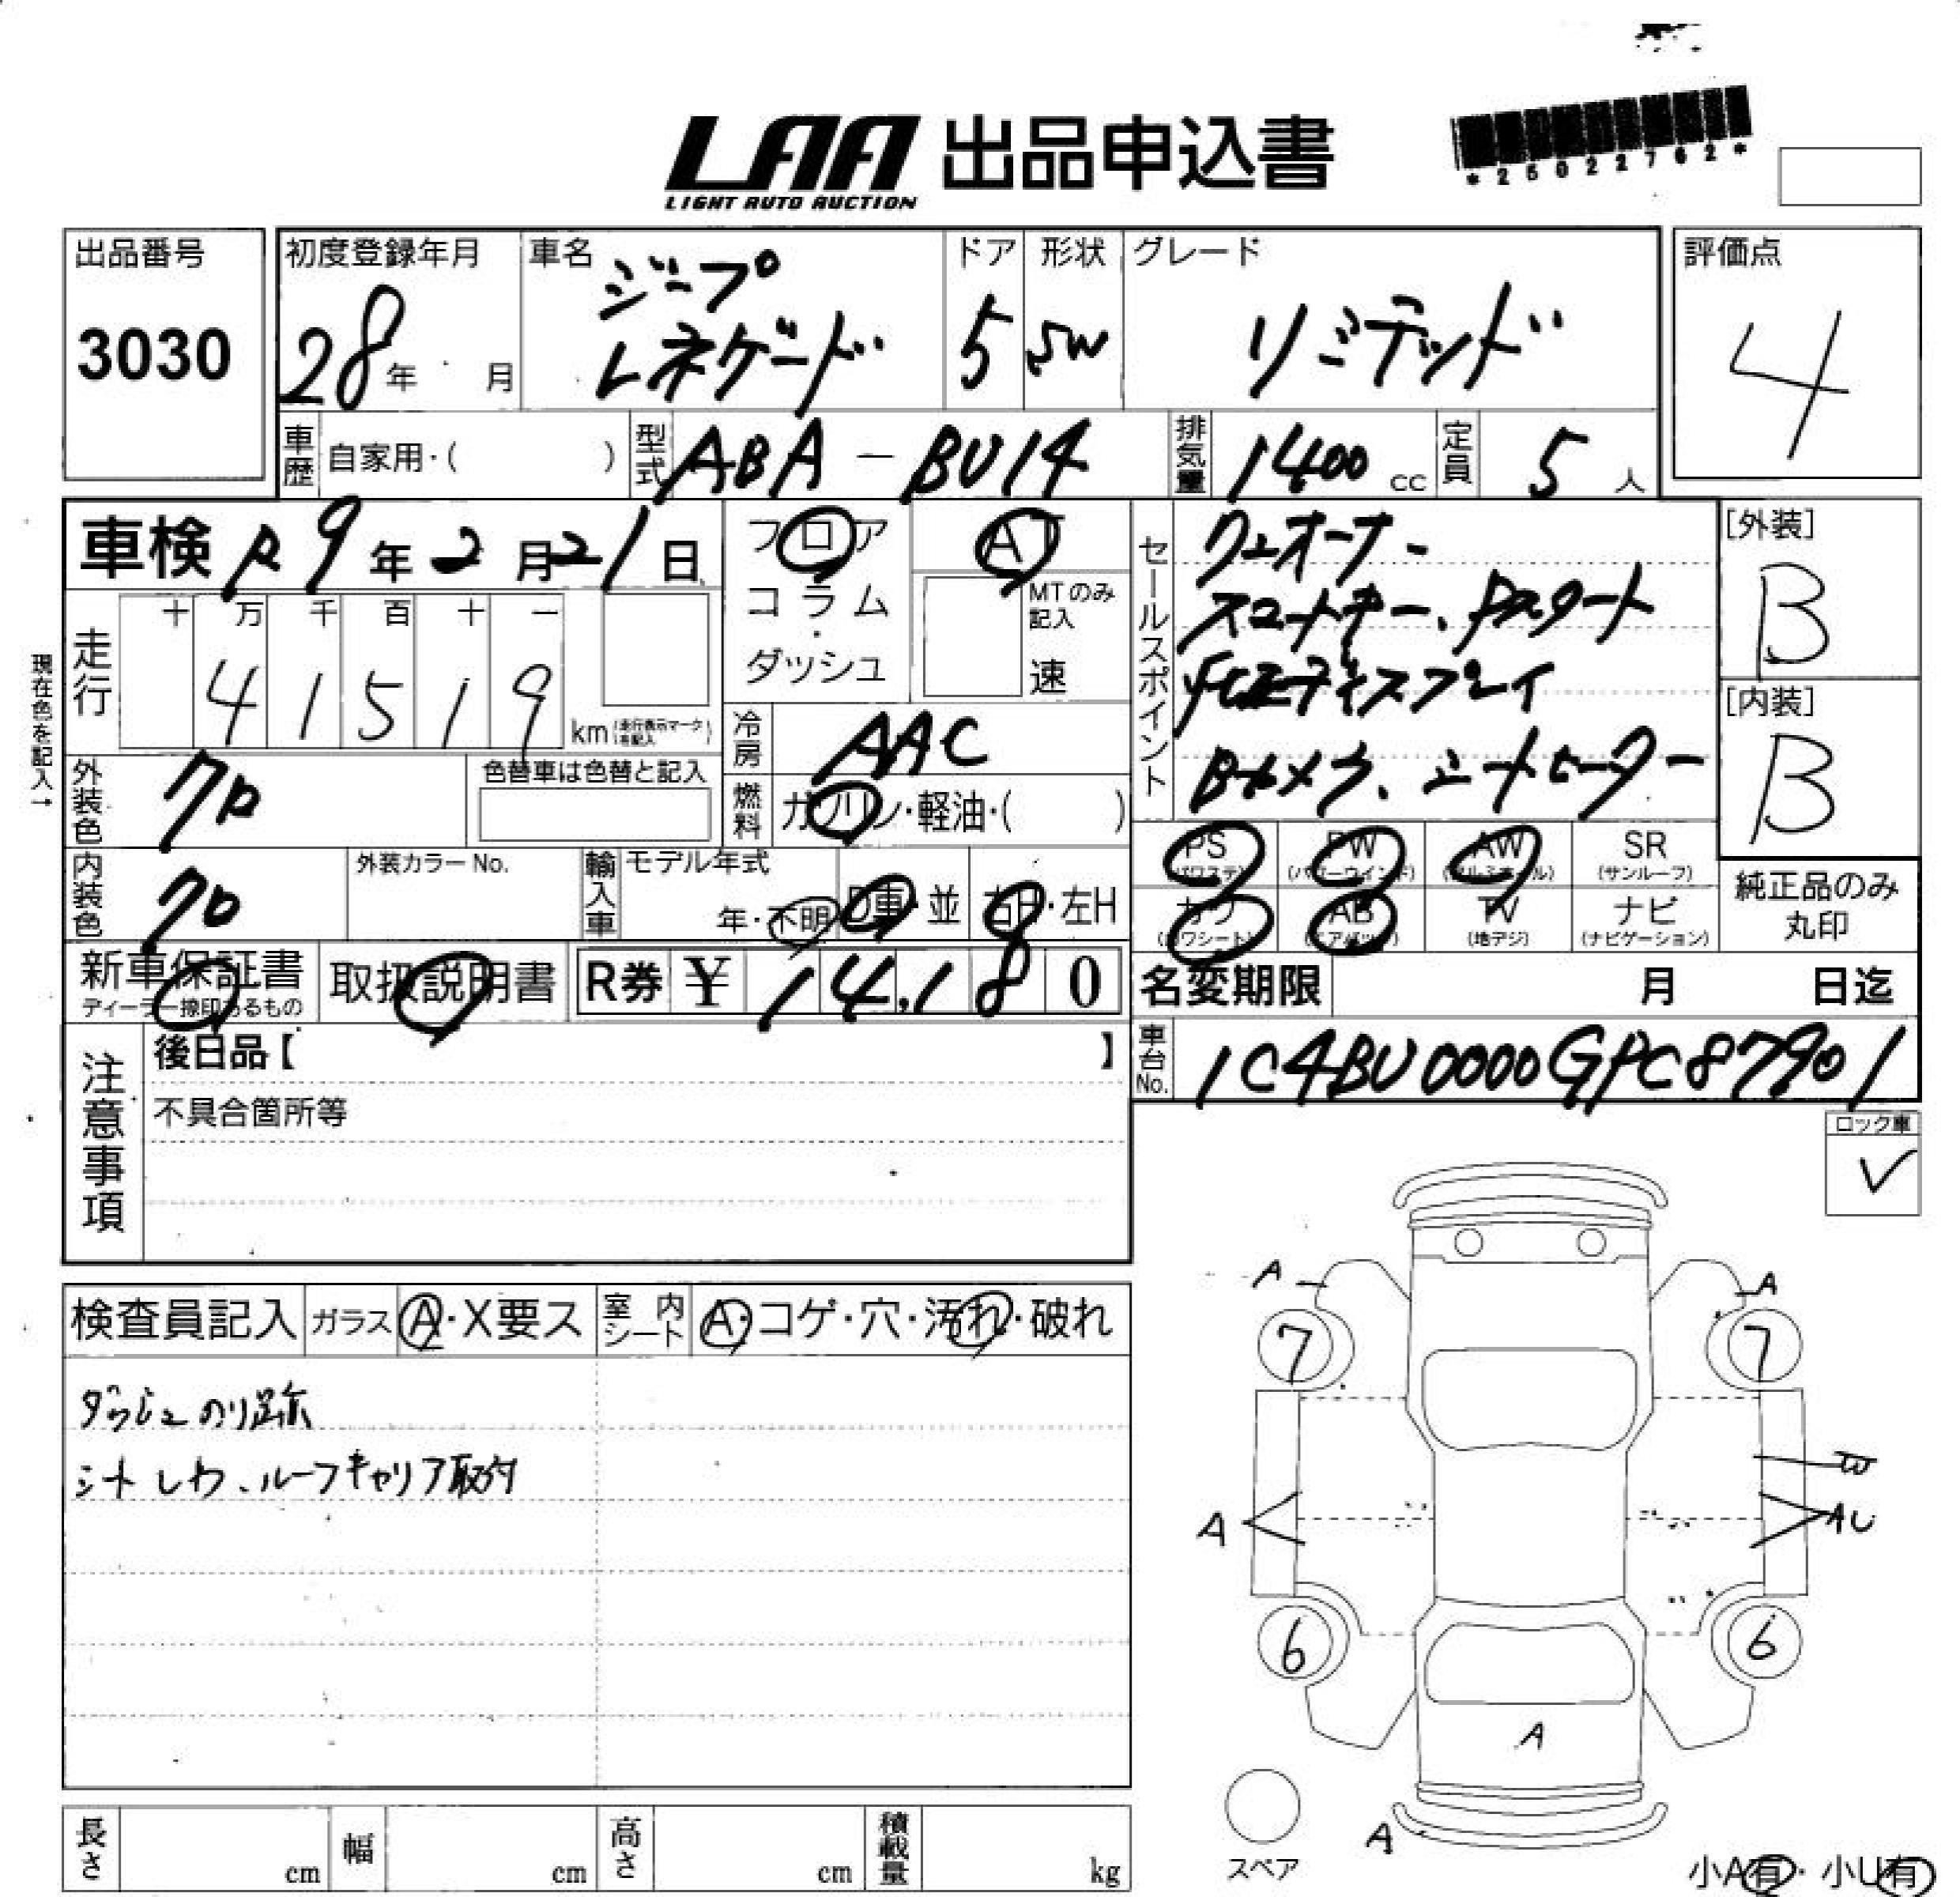 LAA 出品申込書
LIGHT AUTO AUCTION
*25022762*
出品番号
3030
初度登録年月
28年 月
車名
ジープ
レネゲード
ドア
5
形状
SW
グレード
リミテッド
評価点
4
車歴 自家用・( )
型式 ABA-BU14
排気量 1400 cc
定員 5 人
車検 R9年2月21日
フロア
コラム
・
ダッシュ
AT
MTのみ
記入
速
セールスポイント
ワンオーナー
スマートキー、
ディスプレイ
Bカメラ、シートヒーター
[外装]
B
[内装]
B
現在色を記入→
走行
十 万 千 百 十 一
4 1 5 1 9
km (走行表示マーク を記入)
冷房 AAC
燃料 ガソリン・軽油・( )
外装色 クロ
色替車は色替と記入
内装色 クロ
外装カラーNo.
輸入車
モデル年式
年・不明
D車・並
右H・左H
PS
(パワステ)
PW
(パワーウインド)
AW
(アルミホイール)
SR
(サンルーフ)
カワ
(カワシート)
AB
(エアバッグ)
TV
(地デジ)
ナビ
(ナビゲーション)
純正品のみ
丸印
新車保証書
ディーラー捺印あるもの
取扱説明書
R券 ¥ 14,180
名変期限 月 日迄
車台No. 1C4BU0000GPC87901
注意事項
後日品【 】
不具合箇所等
ロック車
✓
検査員記入
ガラス A・X要ス
室内シート A・コゲ・穴・汚れ・破れ
ダッシュのり跡
シートしわ、ルーフキャリア取付
A
A
7
7
W
A
AU
6
6
A
A
スペア
小A有・小U有
長さ cm
幅 cm
高さ cm
積載量 kg